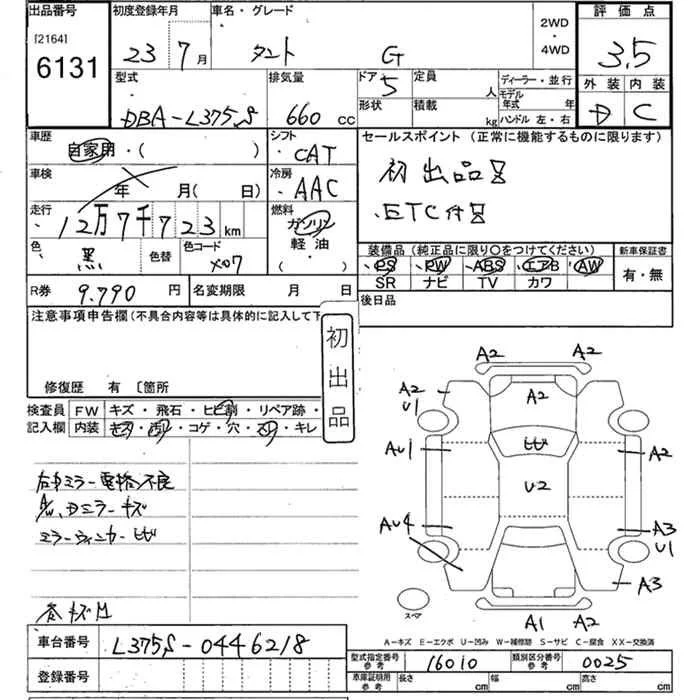 出品番号 初度登録年月 車名・グレード 2WD ・ 4WD 評価点
[2164]
6131 23年7月 タント G 3.5
型式 排気量 ドア 5 定員 人 ディーラー・並行 外装 内装
DBA-L375S 660cc 形状 積載 kg モデル年式 年 ハンドル 左・右 D C
車歴 シフト セールスポイント(正常に機能するものに限ります)
自家用・( ) ・CAT 初出品号
車検 冷房
年 月( 日) ・AAC ・ETC付号
走行 燃料
12万7千723km ガソリン
色 色替 色コード 軽油 装備品(純正品に限り○をつけてください) 新車保証書
黒 X07 ・( ) PS PW ABS エアB AW 有・無
SR ナビ TV カワ
R券 9.790円 名変期限 月 日 後日品
注意事項申告欄(不具合内容等は具体的に記入して下
初出品
修復歴 有 〔箇所
検査員 FW キズ・飛石・ヒビ割・リペア跡・
記入欄 内装 キズ・汚れ・コゲ・穴・スレ・キレ
A2 A2
A2 A2
U1
AU1 ヒビ A2
U2
AU4 A3
U1
A3
右ミラー電格不良
ミラーキズ
ミラーウィンカーヒビ
スペア
A1 A2
A-キズ E-エクボ U-凹み W-補修跡 S-サビ C-腐食 XX-交換済
車台番号 L375S-0446218
型式指定番号 参考 16010 類別区分番号 参考 0025
登録番号
車庫証明用 参考 長さ cm 幅 cm 高さ cm